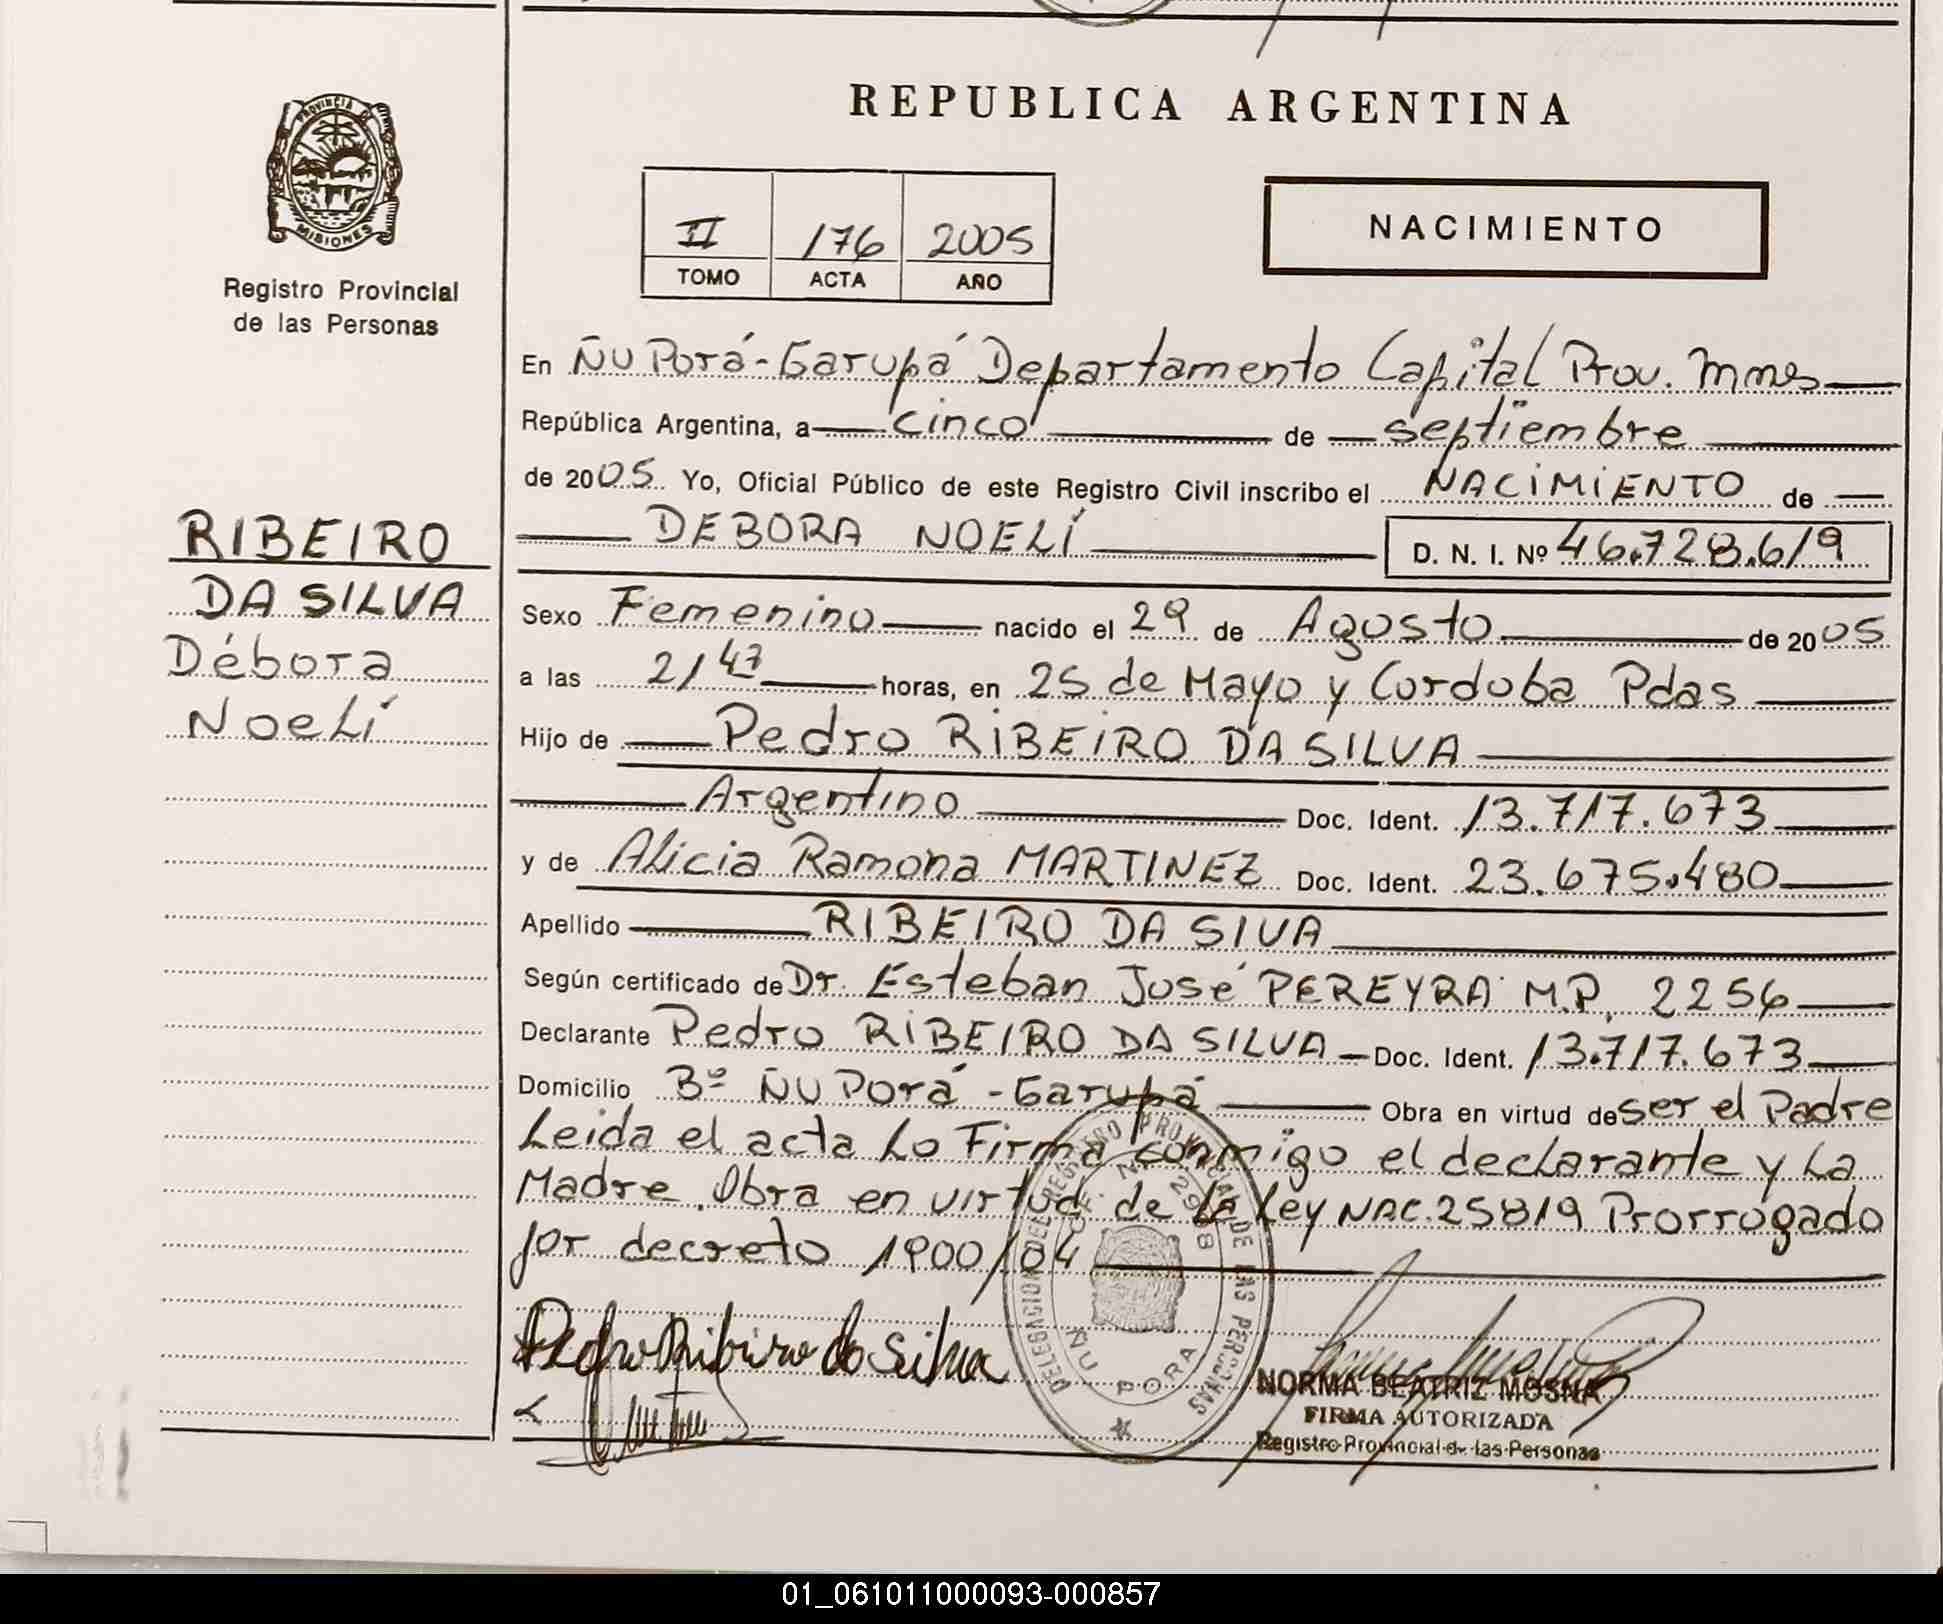 REPUBLICA ARGENTINA
PROVINCIA DE
MISIONES
Registro Provincial
de las Personas
II 176 2005
TOMO ACTA AÑO
NACIMIENTO
En Ñu Porá - Garupá Departamento Capital Prov. Mnes
República Argentina, a cinco de septiembre
de 2005 Yo, Oficial Público de este Registro Civil inscribo el NACIMIENTO de
DEBORA NOELÍ D. N. I. Nº 46.728.619
RIBEIRO
DA SILVA
Débora
Noelí
Sexo Femenino nacido el 29 de Agosto de 2005
a las 21 47 horas, en 25 de Mayo y Cordoba Pdas
Hijo de Pedro RIBEIRO DA SILVA
Argentino Doc. Ident. 13.717.673
y de Alicia Ramona MARTINEZ Doc. Ident. 23.675.480
Apellido RIBEIRO DA SIVA
Según certificado de Dr. Esteban José PEREYRA M.P. 2256
Declarante Pedro RIBEIRO DA SILVA Doc. Ident. 13.717.673
Domicilio Bº ÑU Porá - Garupá Obra en virtud de ser el Padre
Leida el acta Lo Firma conmigo el declarante y La
Madre. Obra en virtud de la Ley NAC. 25819 Prorrogado
por decreto 1900/04
DELEGACION DEL REGISTRO PROVINCIAL DE LAS PERSONAS
ÑU PORA
Pedro Ribiro da Silva
NORMA BEATRIZ MOSNA
FIRMA AUTORIZADA
Registro Provincial de las Personas
01_061011000093-000857